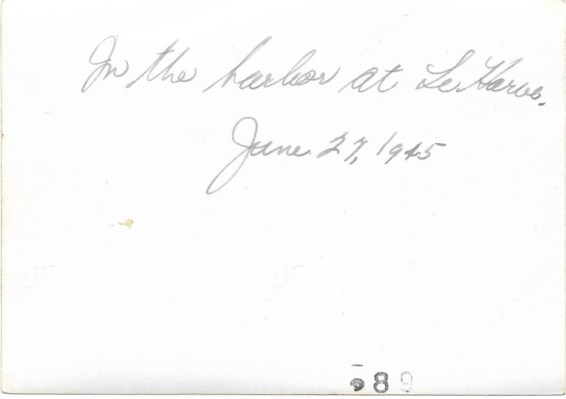 In the harbor at Le Harve.
June 27, 1945
89